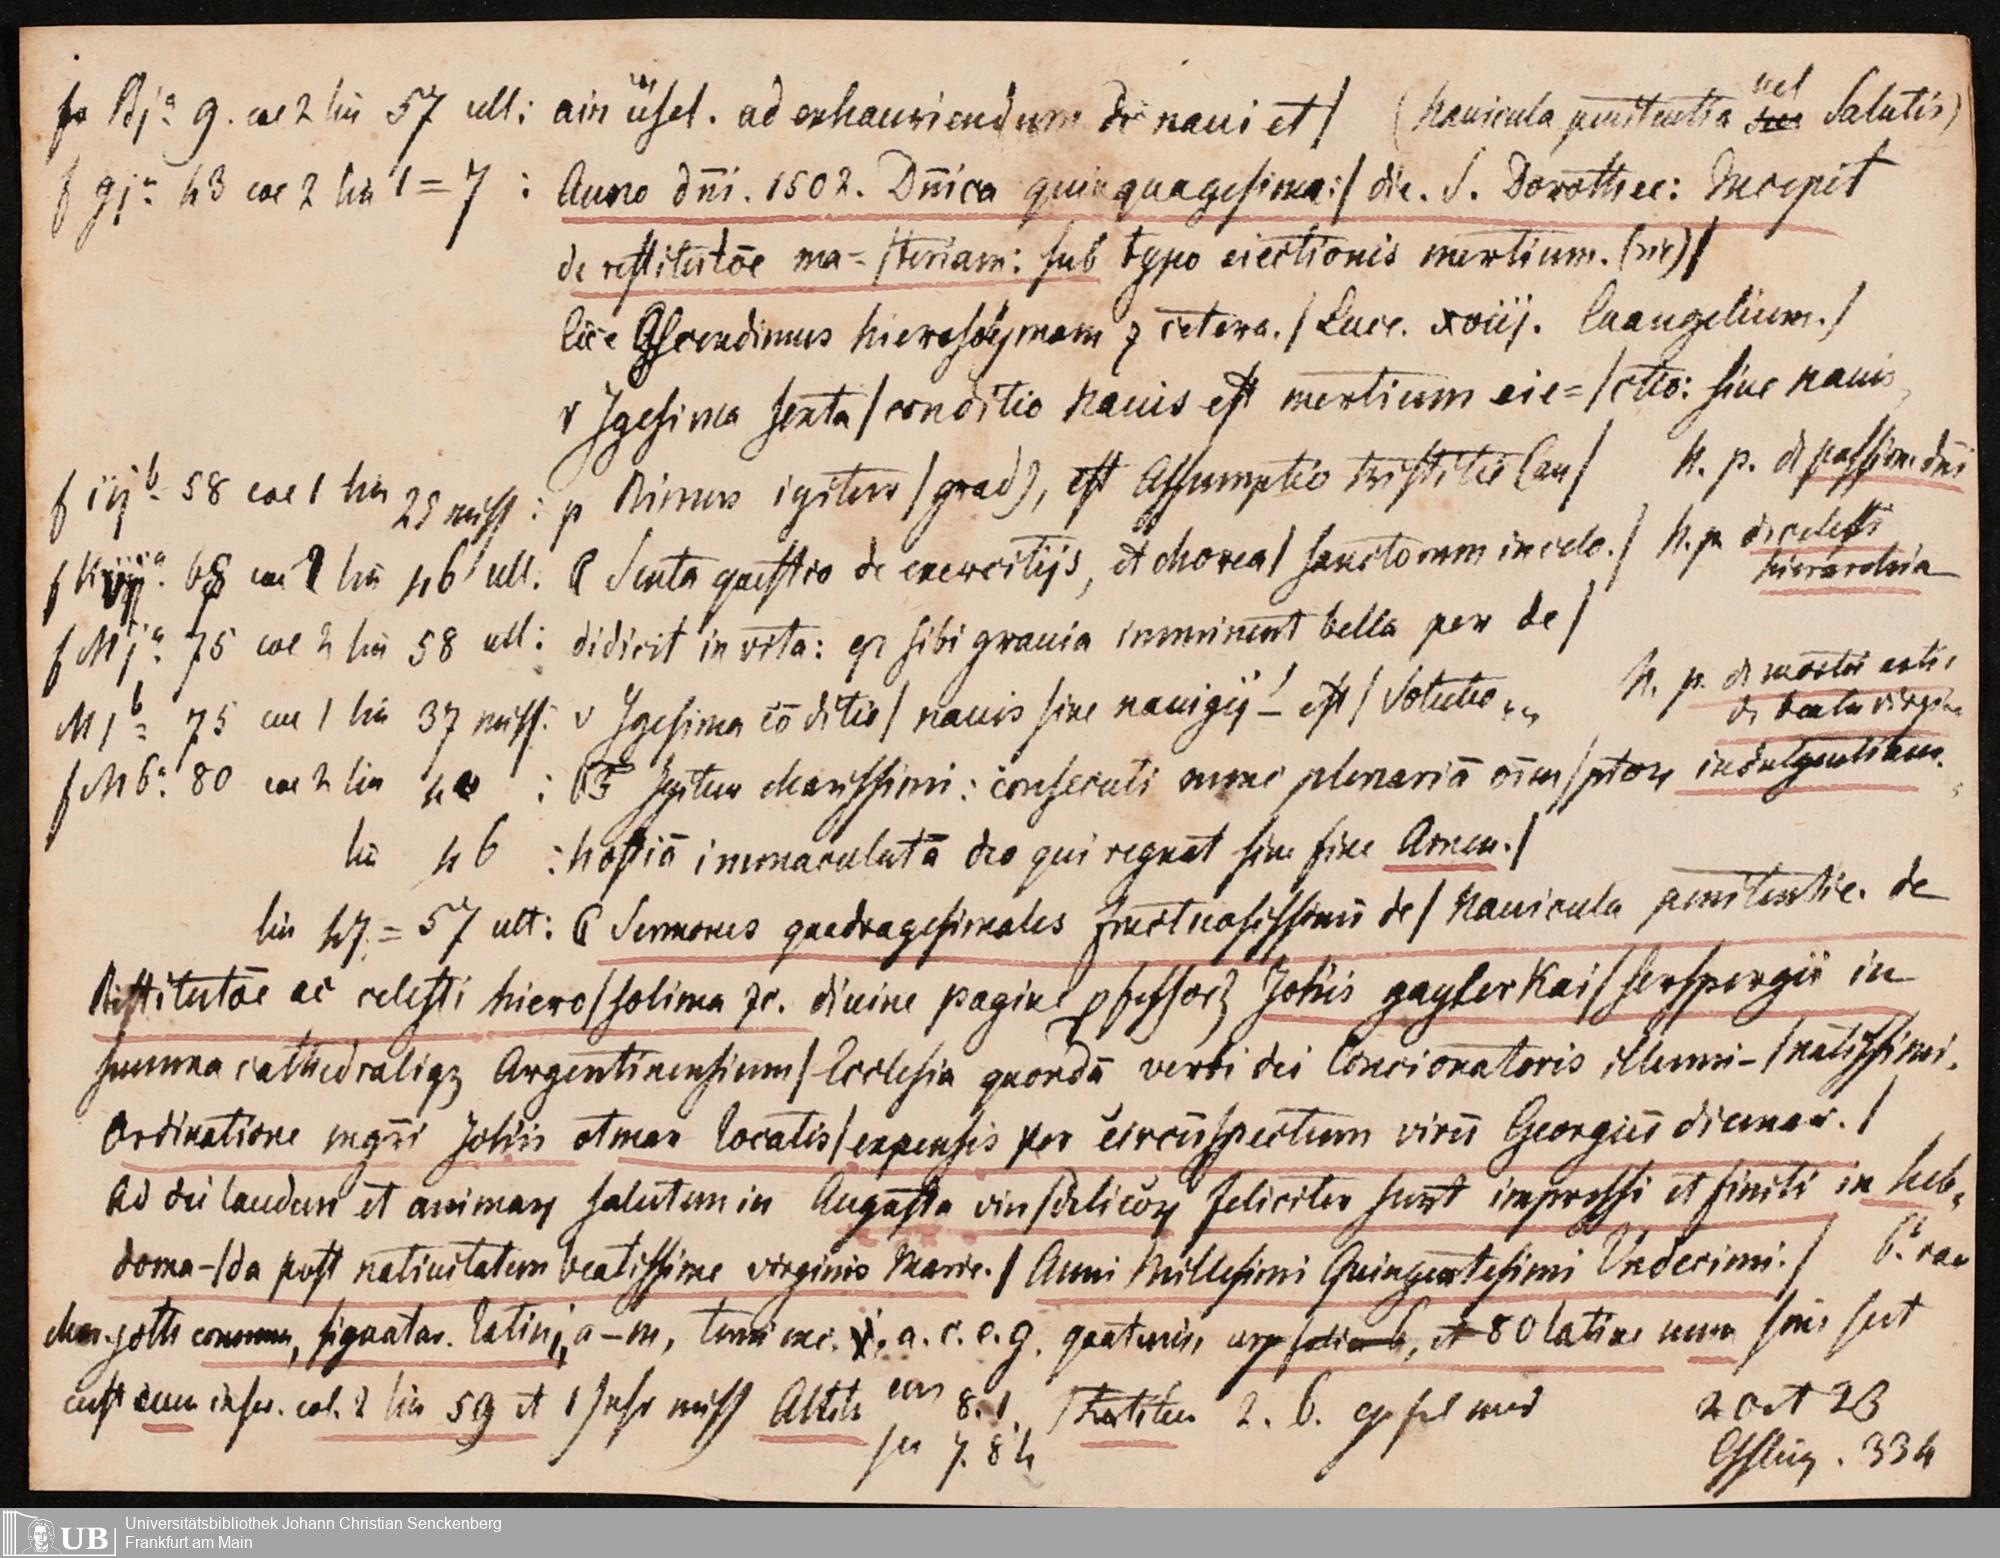 fo Bjᵃ 9. col 2 lin 57 ult: ain üsel. ad exhauriendum de naui et/ (Nauicula penitentia uel Salutis)
f gjᵃ 43 col 2 lin 1=7 : Anno dn̄i. 1502. Dn̄ica quinquagesima:/ die. S. Dorothee: Incepit
de restitutōe ma=/teriam: sub typo eiectionis mertium. (sic)/
Ascendimus hierosolymam ⁊ cetera./ Luce. xviij. Euangelium./
v Jgesima sexta/ conditio Nauis est mertium eie=/ctio: siue nauis
f iijᵇ 58 col 1 lin 25 miss: p Rimus igitur/ grad⁹, est Assumptio tristitie Cau/ N. p. de passione dn̄i
68 col 2 lin 46 ult. C Sexta questio de exercitijs, et chorea/ sanctorum in celo./ N. p. de celesti
hierarchia
f Mjᵃ: 75 col 2 lin 58 ult: didicit in vita: qꝫ sibi grauia imminent bella per de/
M 1ᵇ 75 col 1 lin 37 miss: v Jgesima cōditio/ nauis siue nauigij est/ Solutio N. p. de
de beata virgine
f M6ᵃ: 80 col 2 lin 40 : Igitur charissimi: consecuti nunc plenariā oīm/ pctoꝝ indulgentiam.
lin 46 : hostiā immaculatā deo qui regnat sine fine Amen./
lin 47=57 ult: C Sermones quadragesimales fructuosissimi de/ Nauicula penitentie. de
Restitutōe ac celesti hiero/solima ⁊c. diuine pagine ꝓfessoris Joh̄is gayler Kai/serspergij in
summa cathedraliqꝫ Argentinensium/ Ecclesia quondā verbi dei Concionatoris illumi-/natissimi.
Ordinatione mgr̄i Joh̄is otmar locatis/ expensis per circūspectum virū Georgiū diemar./
Ad dei laudem et animaꝝ salutem in Augusta vin/delicoꝝ feliciter sunt impressi et finiti in heb-
doma-/da post natiuitatem beatissime virginis Marie./ Anni Millesimi Quingentesimi Vndecimi./
char. goth signatur. latini, a-m, a. c. e. g. quaternis, et 80 latine num sine
cust cum infer. col. 2 lin 59 et 1 miss 8. 1. 2. b.
7. 84 2 oct 23
Essling. 334
Universitätsbibliothek Johann Christian Senckenberg
UB Frankfurt am Main